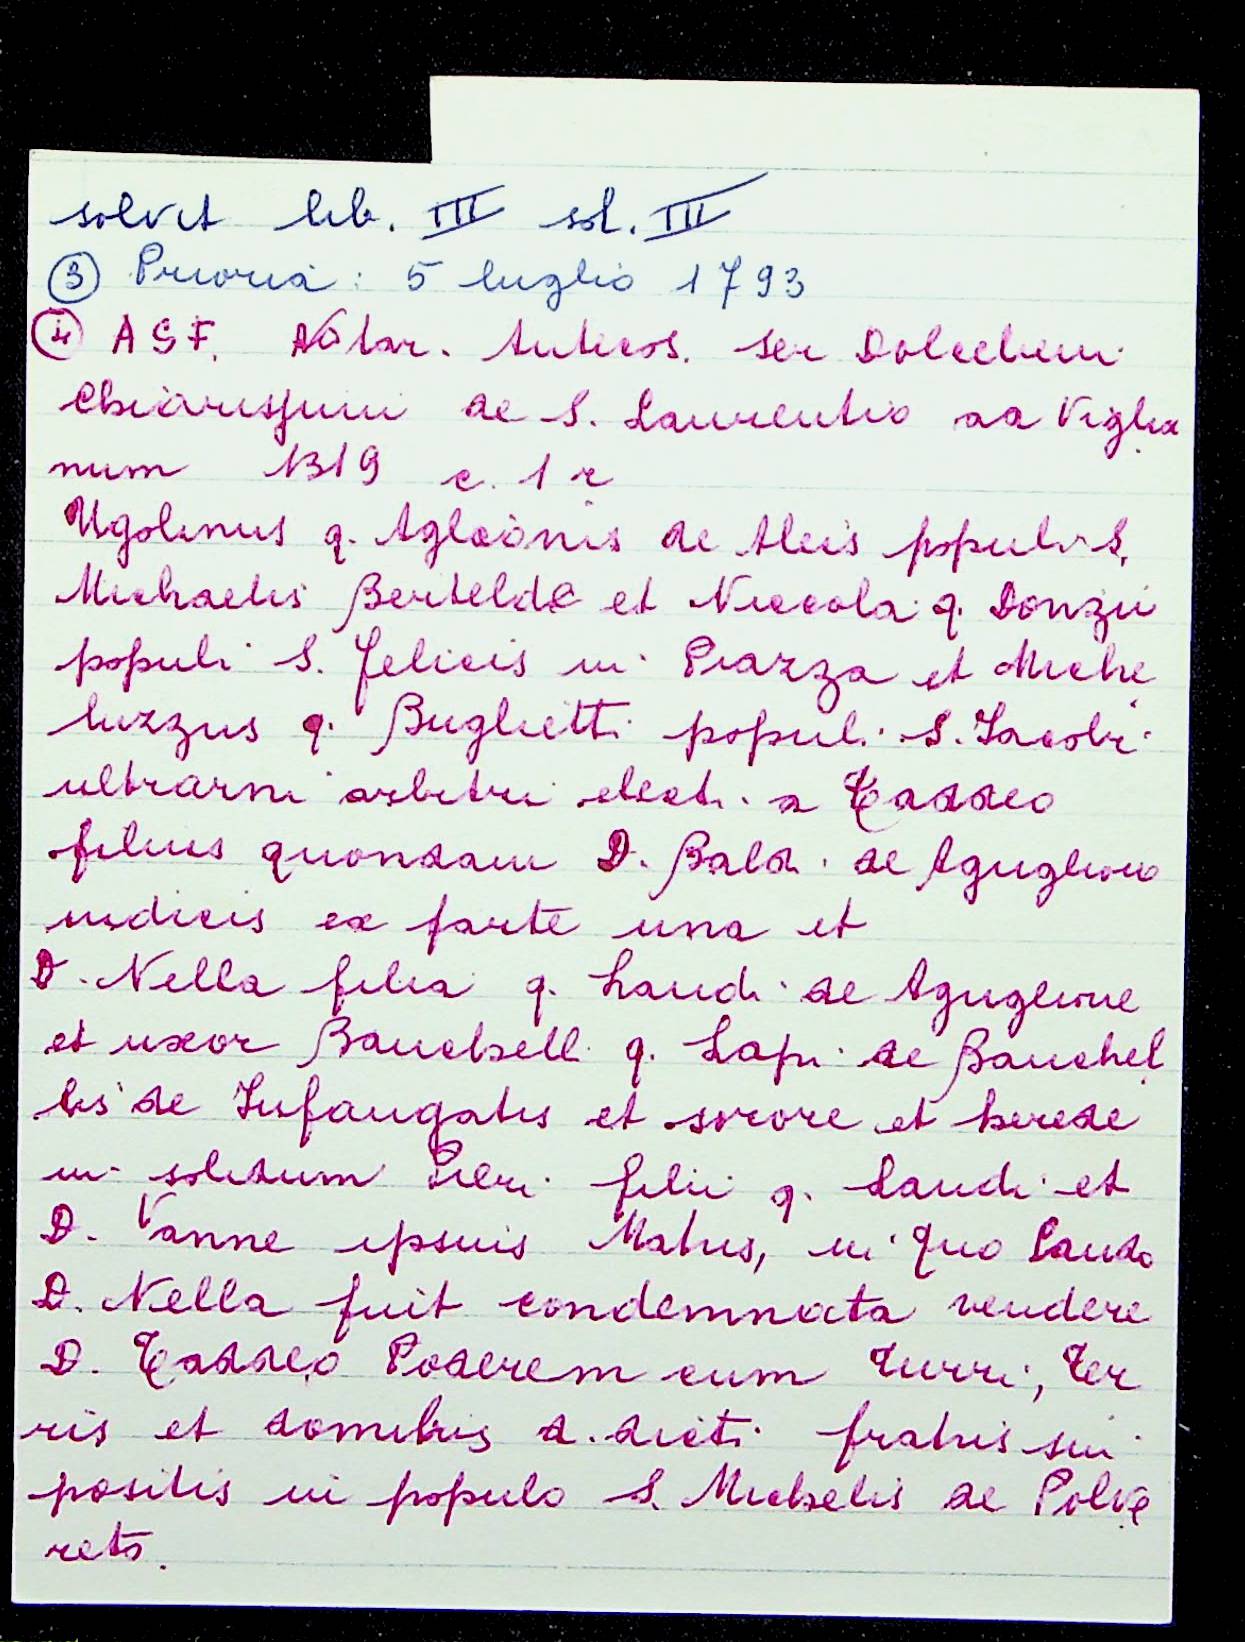 solvit lib. III sol. III
③ Prioria: 5 luglio 1793
④ ASF. Notar. Antecos. Ser Dolcebeni
Chiarissimi de S. Laurentio ad Viglia
num 1319 c. 1 r
Ugolinus q. Aglionis de Aleis populi S.
Michaelis Bertelde et Niccola q. Donzii
populi S. Felicis in Piazza et Miche
luzzus q. Buglietti populi S. Iacobi
ultrarni arbitri electi a Taddeo
filius quondam D. Baldi de Aguglione
iudicis ex parte una et
D. Nella filia q. Landi de Aguglione
et uxor Banchelli q. Lapi de Banchel
lis de Infangatis et sorore et herede
in solidum Pieri filii q. Landi et
D. Vanne ipsius Matris, in quo Laudo
D. Nella fuit condemnata vendere
D. Taddeo Poderem cum Turri, Ter
ris et domibus d. dicti fratris sui
positis in populo S. Michelis de Polve
reto.